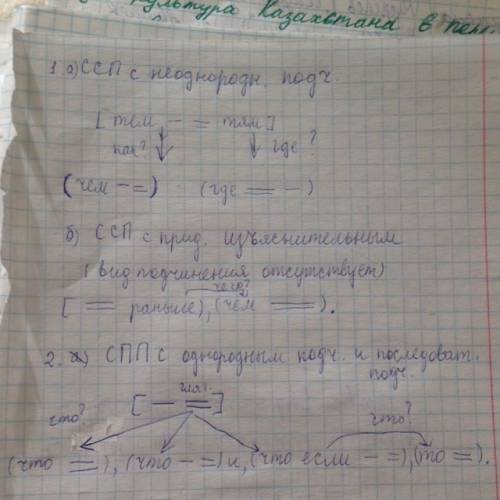 Культура Казахстана в
1 а) ССП с неоднородн. подч.
[тем — = там]
как? где?
(чем — =) (где = —)
б) ССП с прид. изъяснительным
(вид подчинения отсутствует)
чего?
[= раньше), (чем =).
2. а) СПП с однородным подч. и последоват. подч.
глаг.
что? [— =] что?
(что =), (что — =) и, (что если — =), (то =).